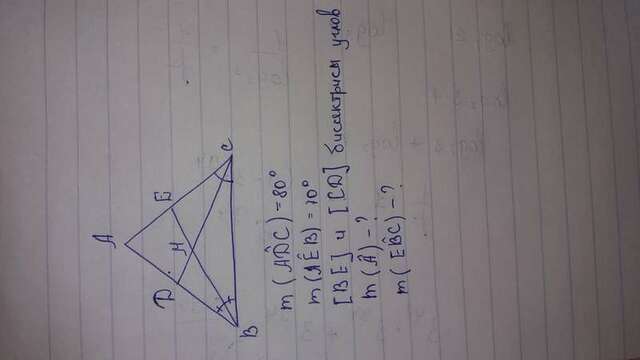 A
D E
M
B C
m(AD̂C)=80°
m(AÊB)=70°
[BE] и [CD] биссектрисы углов
m(Â)-?
m(EB̂C)-?